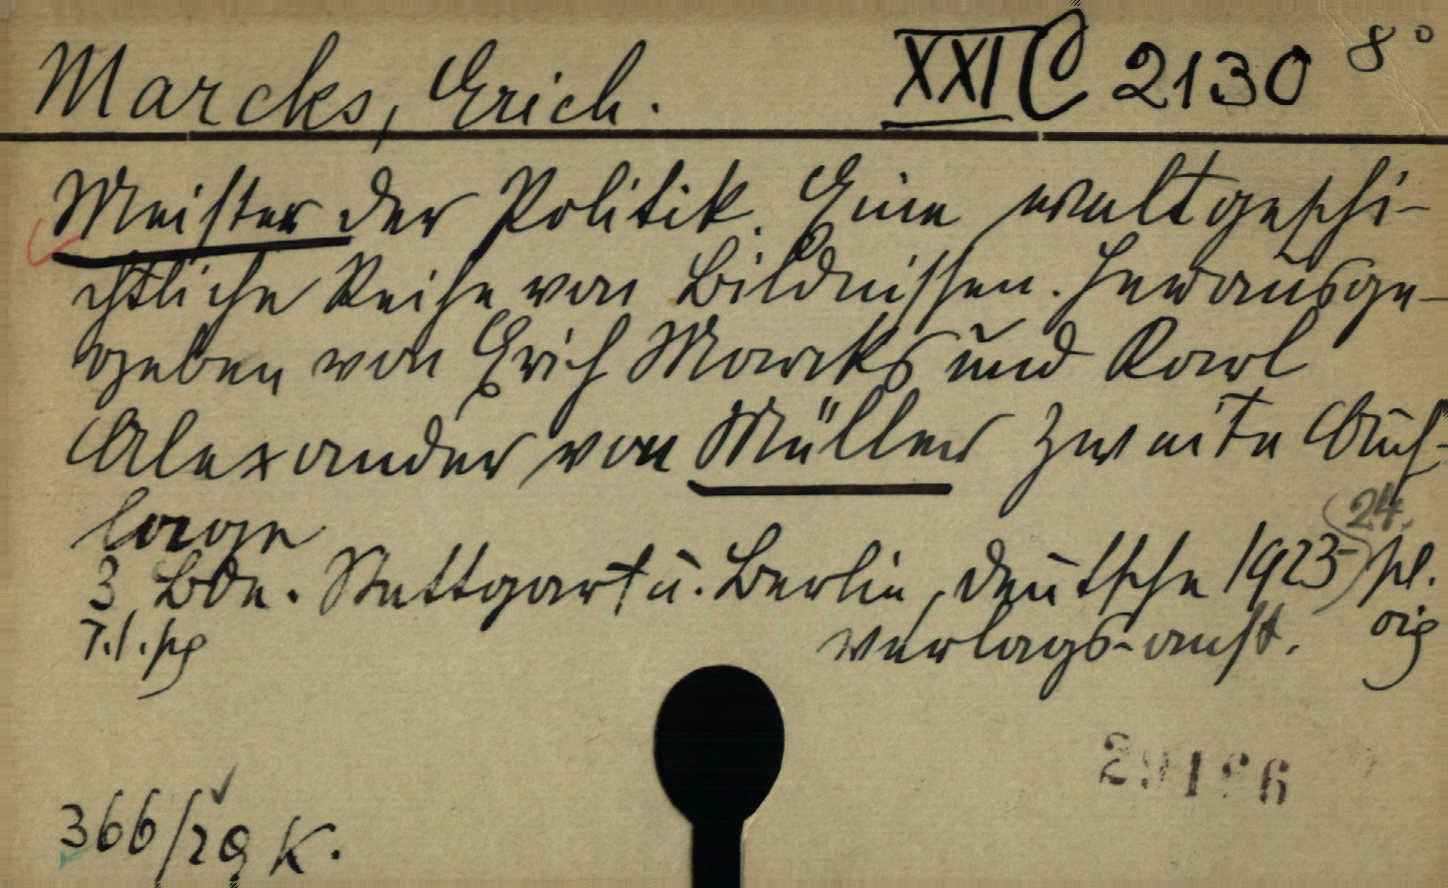 Marcks, Erich. XXI C 2130 8°
Meister der Politik. Eine weltgeschi-
chtliche Reihe von Bildnissen. Herausge-
geben von Erich Marcks und Karl
Alexander von Müller Zweite Auf-
lage 24.
3 Bde. Stuttgart u. Berlin, Deutsche 1923- pl.
T.1. pg Verlags-anst. orig
366/29 K.